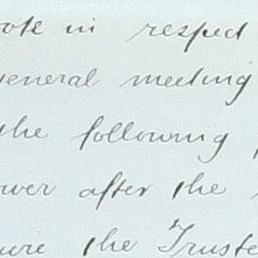 vote in respect
general meeting
the following
wer after the
ure the Truste